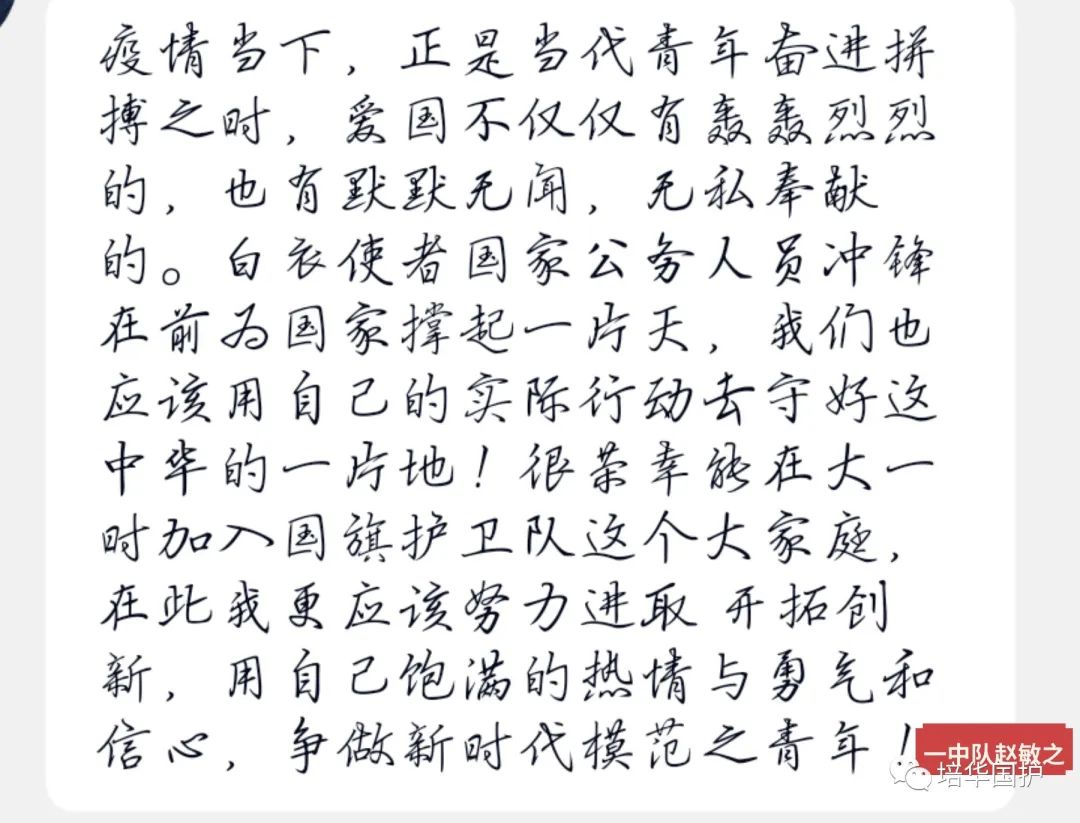 疫情当下，正是当代青年奋进拼
搏之时，爱国不仅仅有轰轰烈烈
的，也有默默无闻，无私奉献
的。白衣使者国家公务人员冲锋
在前为国家撑起一片天，我们也
应该用自己的实际行动去守好这
中华的一片地！很荣幸能在大一
时加入国旗护卫队这个大家庭，
在此我更应该努力进取 开拓创
新，用自己饱满的热情与勇气和
信心，争做新时代模范之青年！
一中队赵敏之
培华国护